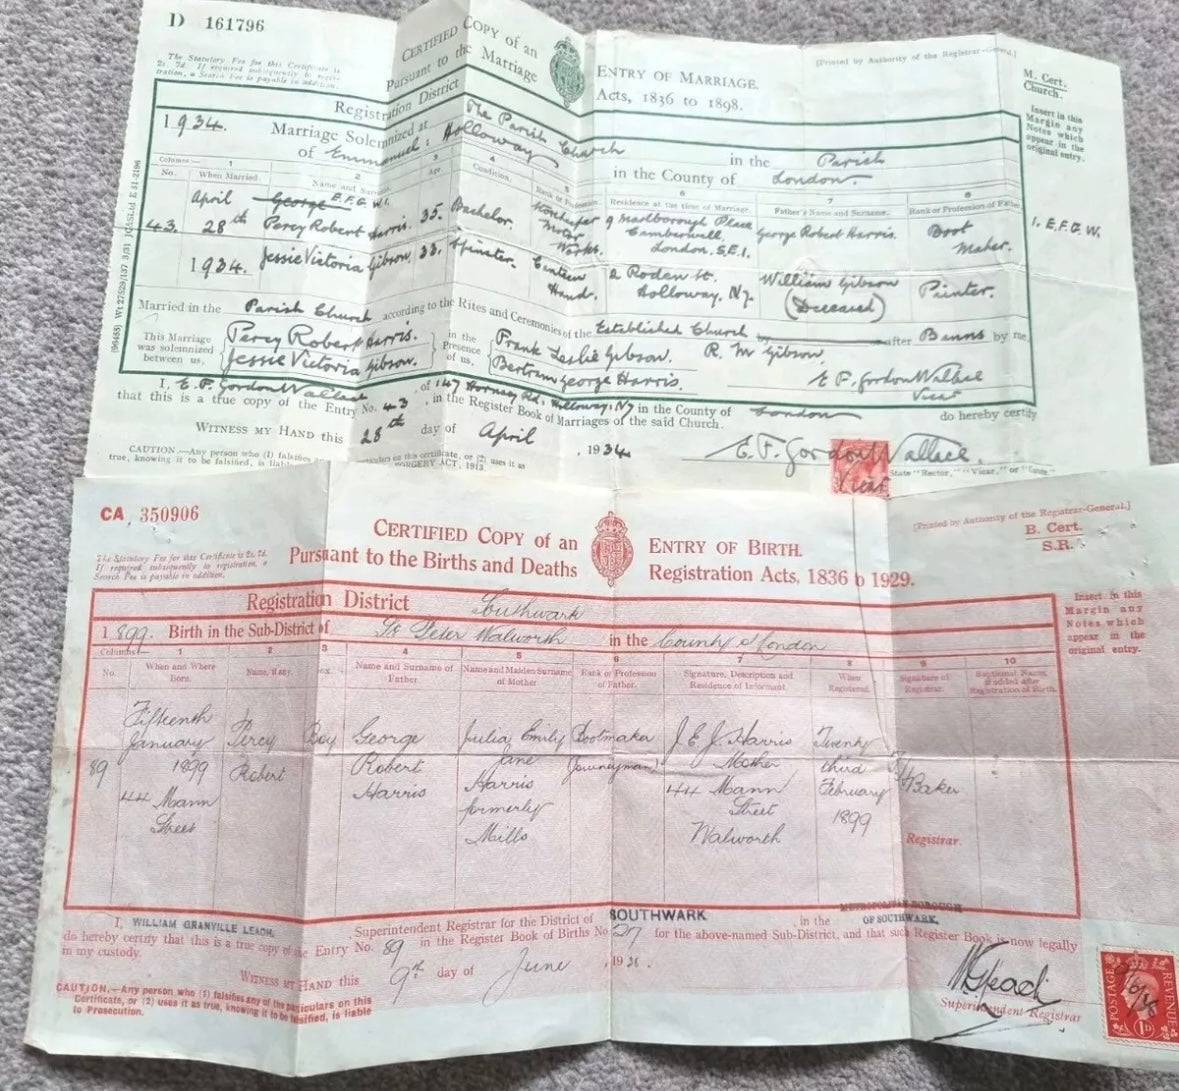 D 161796
CERTIFIED COPY of an ENTRY OF MARRIAGE.
Pursuant to the Marriage Acts, 1836 to 1898.
[Printed by Authority of the Registrar-General.]
M. Cert.
Church.
The Statutory Fee for this Certificate is
2s. 7d. If required subsequently to regis-
tration, a Search Fee is payable in addition.
Insert in this
Margin any
Notes which
appear in the
original entry.
Registration District
1934. Marriage Solemnized at The Parish Church in the Parish
of Emmanuel: Holloway in the County of London.
Columns:— 1 2 3 4 5 6 7 8
No. When Married. Name and Surname. Age Condition. Rank or Profession. Residence at the time of Marriage. Father's Name and Surname. Rank or Profession of Father.
43. April 28th George E.F.G.W. Percy Robert Harris. 35. Bachelor. Storekeeper Motor Works. 9 Marlborough Place Camberwell, London. S.E.1. George Robert Harris. Boot Maker.
1. E.F.G.W.
1934. Jessie Victoria Gibson. 33. Spinster. Canteen Hand. 2 Roden St. Holloway, N7. William Gibson (Deceased) Printer.
Married in the Parish Church according to the Rites and Ceremonies of the Established Church after Banns by me,
This Marriage was solemnized between us, Percy Robert Harris. Jessie Victoria Gibson. in the Presence of us, Frank Leslie Gibson. R. M Gibson, Bertram George Harris. E F. Gordon Wallace Vicar
I, E. F. Gordon Wallace of 147 Hornsey Rd. Holloway, N7 in the County of London do hereby certify
that this is a true copy of the Entry No. 43, in the Register Book of Marriages of the said Church.
WITNESS MY HAND this 28th day of April, 1934. E. F. Gordon Wallace. Vicar
CAUTION.—Any person who (1) falsifies any particulars on this certificate, or (2) uses it as
true, knowing it to be falsified, is liable FORGERY ACT, 1913.
State "Rector," "Vicar," or "Curate."
CA 350906
CERTIFIED COPY of an ENTRY OF BIRTH.
Pursuant to the Births and Deaths Registration Acts, 1836 to 1929.
[Printed by Authority of the Registrar-General.]
B. Cert.
S.R.
The Statutory Fee for this Certificate is 2s. 7d.
If required subsequently to registration, a
Search Fee is payable in addition.
Insert in this
Margin any
Notes which
appear in the
original entry.
Registration District Southwark
1899. Birth in the Sub-District of St Peter Walworth in the County of London
Columns:— 1 2 3 4 5 6 7 8 9 10
No. When and Where Born. Name, if any. Sex. Name and Surname of Father. Name and Maiden Surname of Mother. Rank or Profession of Father. Signature, Description and Residence of Informant. When Registered. Signature of Registrar. Baptismal Name, if added after Registration of Birth.
89 Fifteenth January 1899 44 Mann Street Percy Robert Boy George Robert Harris Julia Emily Jane Harris formerly Mills Bootmaker (Journeyman) J E J Harris Mother 44 Mann Street Walworth Twenty third February 1899 Baker Registrar.
I, WILLIAM GRANVILLE LEACH, Superintendent Registrar for the District of SOUTHWARK in the METROPOLITAN BOROUGH OF SOUTHWARK,
do hereby certify that this is a true copy of the Entry No. 89 in the Register Book of Births No. 27 for the above-named Sub-District, and that such Register Book is now legally
in my custody.
WITNESS MY HAND this 9th day of June, 19
CAUTION.—Any person who (1) falsifies any of the particulars on this
Certificate, or (2) uses it as true, knowing it to be falsified, is liable
to Prosecution.
W G Leach
Superintendent Registrar
POSTAGE
REVENUE
1D